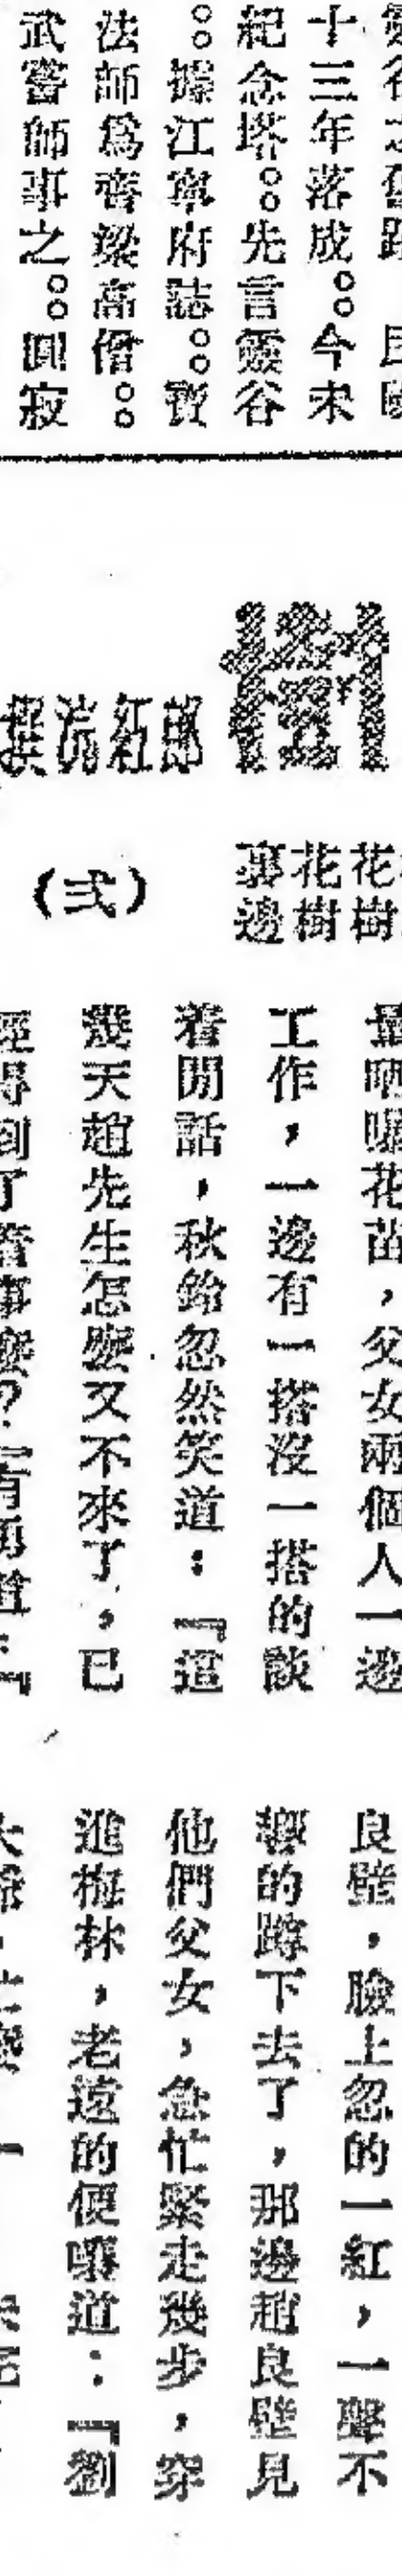 十三年落成。。今未
紀念塔。。先言靈谷
。。據江寧府誌。。寶
法師爲齊梁高僧。。
武嘗師事之。。圓寂
樹
郎紅浣撰
花樹
花樹
裏邊
(弍)
量晒曝花苗，父女兩個人一邊
工作，一邊有一搭沒一搭的談
着閒話，秋鈴忽然笑道：『這
幾天趙先生怎麽又不來了，已
良壁，臉上忽的一紅，一聲不
響的蹲下去了，那邊趙良壁見
他們父女，急忙緊走幾步，穿
進梅林，老遠的便嚷道：『劉